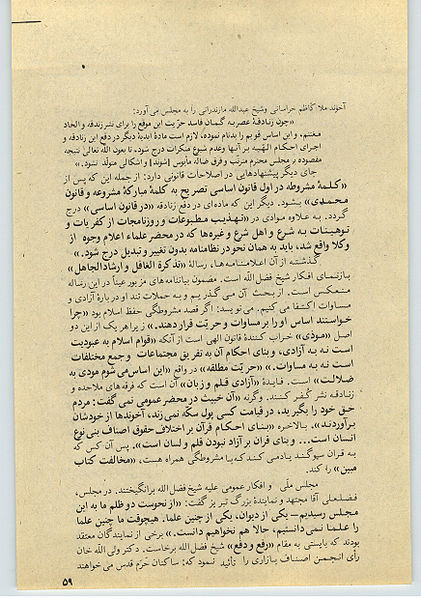 آخوند ملا کاظم خراسانی وشیخ عبدالله مازندرانی را به مجلس می آورد:
«چون زنادقهٔ عصر به گمان فاسد حرّیت این موقع را برای نشر زندقه و الحاد
مغتنم، و این اساس قویم را بدنام نموده، لازم است مادهٔ ابدیهٔ دیگر در دفع این زنادقه و
اجرای احکام الهیه بر آنها وعدم شیوع منکرات درج شود، تا بعون الله تعالی نتیجه
مقصوده بر مجلس محترم مترتب و فرق ضاله مأیوس [شوند] و اشکالی متولد نشود.»
جای دیگر پیشنهادهایی در اصلاحات قانونی دارد: از جمله این که پس از
«کلمهٔ مشروطه در اول قانون اساسی تصریح به کلمهٔ مبارکهٔ مشروعه و قانون
محمدی» بشود. دیگر این که ماده‌ای در دفع زنادقه «در قانون اساسی» درج
گردد. به علاوه موادی در «تهذیب مطبوعات و روزنامجات از کفریات و
توهینات به شرع و اهل شرع و غیره‌ها که در محضر علماء اعلام وجوه از
وکلا واقع شد، باید به همان نحو در نظامنامه بدون تغییر و تبدیل درج شود.»
گذشته از آن اعلامنامه‌ها، رسالهٔ «تذکرة الغافل و ارشاد الجاهل»
بازنمای افکار شیخ فضل الله است. مضمون بیاننامه‌های مزبور عیناً در این رساله
منعکس است. از بحث آن می گذریم و به حملات تند او در بارهٔ آزادی و
مساوات اکتفا می کنیم. می نویسد: اگر قصد مشروطگی حفظ اسلام بود «چرا
خواستند اساس او را بر مساوات و حرّیت قرار دهند.» زیرا هر یک از این دو
اصل «موذی» خراب کنندهٔ قانون الهی است از آنکه «قوام اسلام به عبودیت
است نه به آزادی، و بنای احکام آن به تفریق مجتمعات و جمع مختلفات
است نه به مساوات.» «حرّیت مطلقه» در واقع «این اساس می شوم مودی به
ضلالت» است. فایدهٔ «آزادی قلم و زبان» آن است که فرقه‌های ملاحده و
زنادقه نشر کفر کنند. وگرنه «آن خبیث در محضر عمومی نمی گفت: مردم
حق خود را بگیرید، در قیامت کسی پول سکّه نمی زند، آخوندها از خودشان
برآوردند». بالاخره «بنای احکام قرآن بر اختلاف حقوق اصناف بنی نوع
انسان است... و بنای قرآن بر آزاد نبودن قلم و لسان است». پس آن کس که
به قرآن سوگند یاد می کند که با مشروطگی همراه هست، «مخالفت کتاب
مبین» را کند.
مجلس ملّی و افکار عمومی علیه شیخ فضل الله برانگیختند. در مجلس،
فضلعلی آقا مجتهد و نمایندهٔ بزرگ تبریز گفت: «از نحوست دو ظلم ما به این
مجلس رسیدیم – یکی از دیوان، یکی از چنین علما. هیچوقت ما چنین علما
را علما نمی دانستیم، حالا هم نخواهیم دانست.» برخی از نمایندگان معتقد
بودند که بایستی به مقام «رفع و دفع» شیخ فضل الله برخاست. دکتر ولی الله خان
رأی انجمن اصناف بازاری را تأیید نمود که: ساکنان حَرَم قدس می خواهند
۵۹